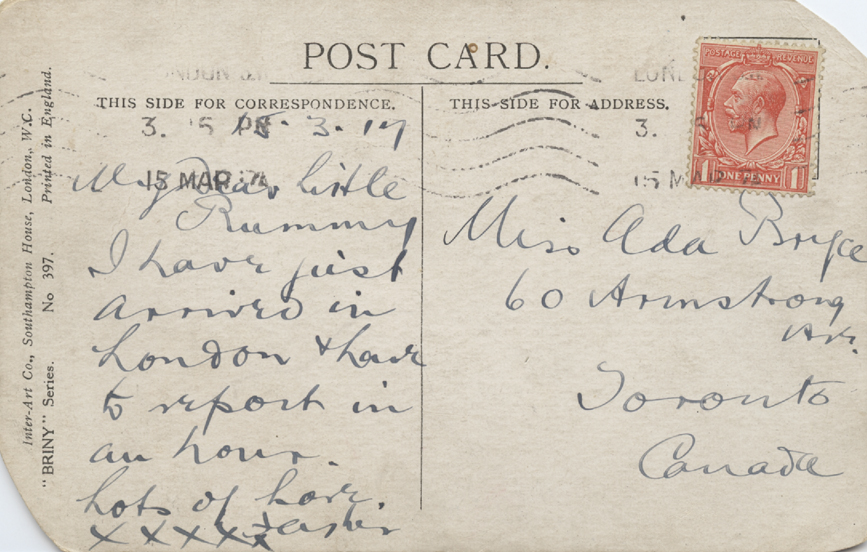 POST CARD.
THIS SIDE FOR CORRESPONDENCE.
THIS SIDE FOR ADDRESS.
Inter-Art Co., Southampton House, London, W.C.
Printed in England.
"BRINY" Series. No 397.
15 3. 17
My Dear Little
Rummy
I have just
arrived in
London & have
to report in
an hour.
Lots of love.
xxxxx
Miss Ada Bryce
60 Armstrong
Av.
Toronto
Canada
POSTAGE REVENUE
1 ONE PENNY 1
LONDON
3. 15 PM
15 MAR 17
LOND
3.
15 MAR